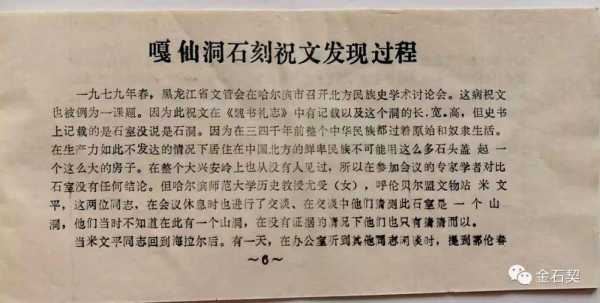 嘎仙洞石刻祝文发现过程
一九七九年春，黑龙江省文管会在哈尔滨市召开北方民族史学术讨论会。这病祝文
也被例为一课题。因为此祝文在《魏书礼志》中有记载以及这个洞的长、宽、高，但史书
上记载的是石室没说是石洞。因为在三四千年前整个中华民族都过着原始和奴隶生活。
在生产力如此不发达的情况下居住在中国北方的鲜卑民族不可能用这么多石头盖 起 一
个这么大的房子。在整个大兴安岭上也从没有人见过，所以在参加会议的专家学者对比
石室没有任何结论。但哈尔滨师范大学历史教授尤受（女），呼伦贝尔盟文物站 米 文
平，这两位同志，在会议休息时也进行了交谈，在交谈中他们猜测此石室是 一 个 山
洞，他们当时不知道在此有一个山洞，在没有证据的情况下他们也只有猜猜而以。
当米文平同志回到海拉尔后。有一天，在办公室听到其他同志闲谈时，提到鄂伦春
～6～
金石契